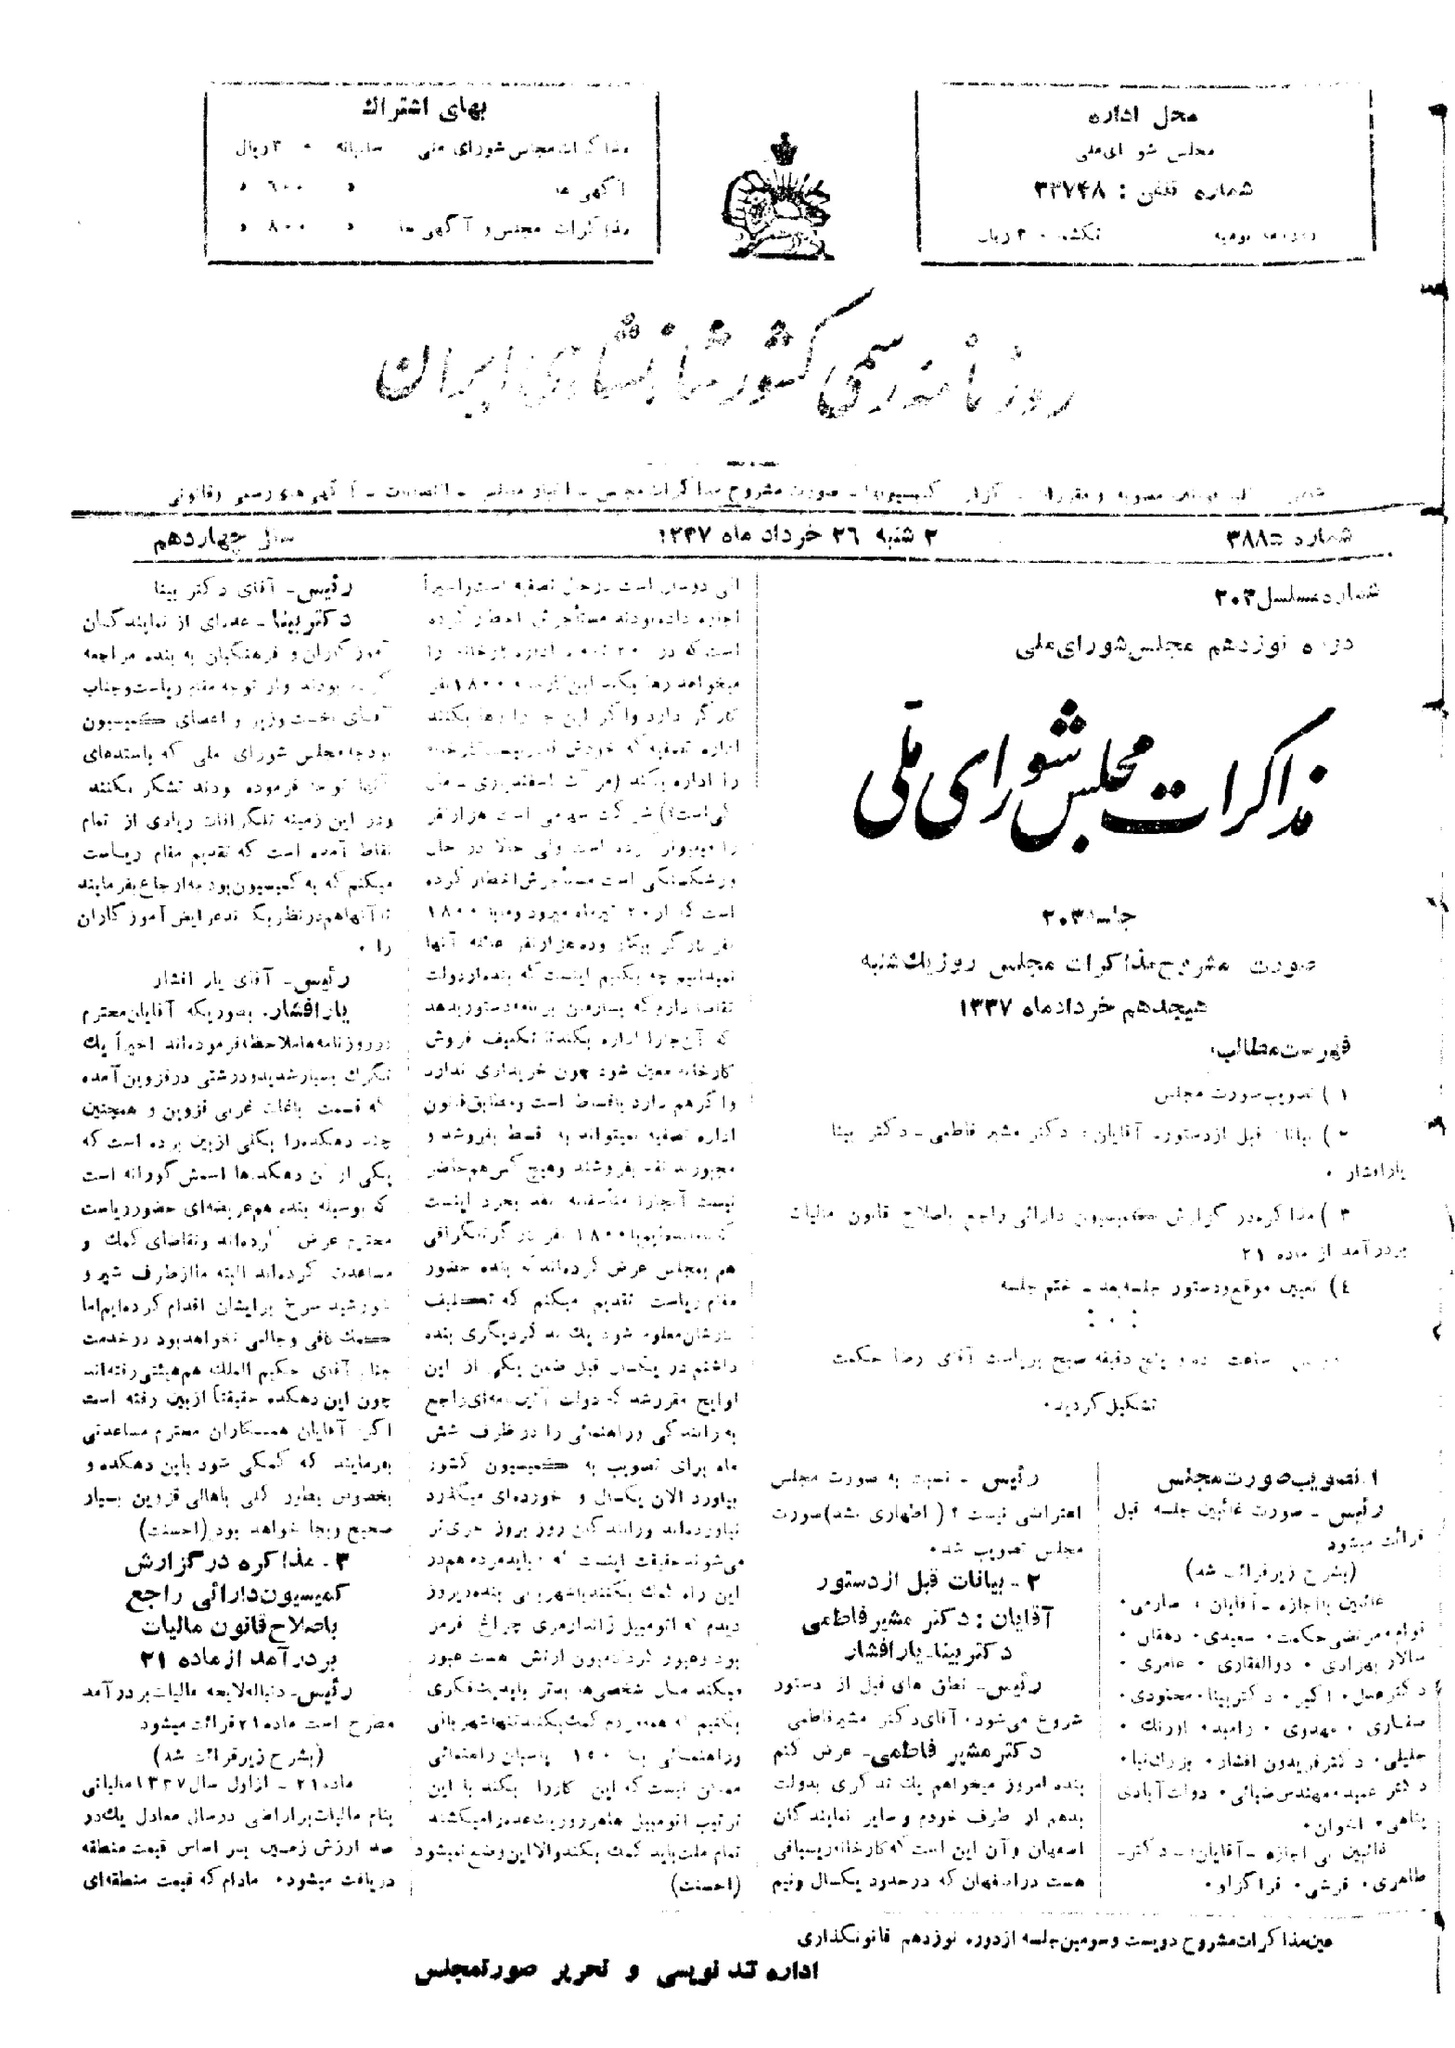 محل اداره
مجلس شورای ملی
شماره تلفن : ۳۳۷۴۸
بهای اشتراك
مذاکرات مجلس شورای ملی سالیانه ریال
آگهی ها » ۶۰۰ »
مذاکرات مجلس و آگهی ها » ۸۰۰ »
روزنامه رسمی کشور شاهنشاهی ایران
شماره ۳۸۸۵
۲ شنبه ۲۶ خرداد ماه ۱۳۳۷
سال چهاردهم
شماره مسلسل ۲۰۳
دوره نوزدهم مجلس شورای ملی
مذاکرات مجلس شورای ملی
جلسه ۲۰۳
صورت مشروح مذاکرات مجلس روز یك شنبه
هیجدهم خرداد ماه ۱۳۳۷
فهرست مطالب:
۱ ) تصویب صورت مجلس
۲ ) بیانات قبل از دستور- آقایان: دکتر مشیر فاطمی - دکتر بینا
یارافشار .
۳ ) مذاکره در گزارش کمیسیون دارائی راجع باصلاح قانون مالیات
بر درآمد از ماده ۲۱
۴ ) تعیین موقع و دستور جلسه بعد - ختم جلسه
ساعت ده و پنج دقیقه صبح بریاست آقای رضا حکمت
تشکیل گردید.
۱- تصویب صورت مجلس
رئیس - صورت غائبین جلسه قبل
قرائت میشود
(بشرح زیر قرائت شد)
غائبین با اجازه - آقایان : صارمی .
قوام . مرتضی حکمت . سعیدی . دهقان .
سالار بهزادی . ذوالفقاری . عامری .
دکتر عدل . اکبر . دکتر بینا . محمودی .
صفاری . مهدوی . رامبد . اورنك .
خلیلی . دکتر فریدون افشار . بزرگ نیا .
دکتر عمید . مهندس ضیائی . دولت آبادی
پناهی . اخوان .
غائبین بی اجازه - آقایان : دکتر
طاهری . قرشی . قراگزلو .
رئیس - نسبت به صورت مجلس
اعتراضی نیست ؟ ( اظهاری نشد) صورت
مجلس تصویب شد .
۲ - بیانات قبل از دستور
آقایان : دکتر مشیر فاطمی
دکتر بینا - یارافشار
رئیس - نطق های قبل از دستور
شروع می‌شود . آقای دکتر مشیر فاطمی
دکتر مشیر فاطمی - عرض کنم
بنده امروز میخواهم یك تذکری بدولت
بدهم از طرف خودم و سایر نمایندگان
اصفهان و آن این است که کارخانه ریسبافی
هست در اصفهان که در حدود یکسال و نیم
است در حال تصفیه است و اخیراً
اجاره داده بودند مستأجرش اخطار کرده
است که در ۲۰ تیرماه اداره کارخانه را
میخواهد رها بکند این کارخانه ۱۸۰۰ نفر
کارگر دارد واگر این را رها بکنند
اداره تصفیه که خودش کارخانه
را اداره بکند (مرآت اسفندیاری - مال
کی است؟) شرکت سهامی است هزار نفر
ولی حالا در حال
ورشکستگی است مستأجرش اخطار کرده
است که از ۲۰ تیر ماه میرود و ۱۸۰۰
نفر کارگر بیکار و ده هزار نفر عائله آنها
نمیدانیم چه بکنیم اینست که بنده از دولت
تقاضا دارم که بسازمان برنامه دستور بدهد
که آن جا را اداره بکند تا تکلیف فروش
کارخانه معین شود چون خریداری ندارد
واگر هم دارد باقساط است و مطابق قانون
اداره تصفیه نمیتواند به قسط بفروشد و
مجبورند نقد بفروشند و هیچ کس هم حاضر
نیست آنجا را متأسفانه نقد بخرد اینست
۱۸۰۰ نفر کارگر تلگرافی
هم بمجلس عرض کرده‌اند که بنده حضور
مقام ریاست تقدیم میکنم که تکلیف
کارشان معلوم شود یك تذکر دیگری بنده
داشتم در یکسال قبل ضمن یکی از این
لوایح مقرر شد که دولت آئین نامه‌ای راجع
به رانندگی و راهنمائی را در ظرف شش
ماه برای تصویب به کمیسیون کشور
بیاورد الان یکسال و خورده‌ای میگذرد
نیاورده‌اند و رانندگان روز بروز جری‌تر
می‌شوند حقیقت اینست که باید مردم هم در
این راه كمك بکنند با شهربانی بنده دیروز
دیدم که اتومبیل ژاندارمری چراغ قرمز
بود و عبور کرد کامیون ارتش هست عبور
میکند مال شخصی‌ها بدتر باید یك فکری
بکنیم که همه مردم كمك بکنند تنها شهربانی
وراهنمائی با ۱۵۰ پاسبان راهنمائی
ممکن نیست که این کار را بکند با این
ترتیب اتومبیل ها هر روز یك عده را میکشند
تمام ملت باید کمك بکند والا این وضع نمیشود
(احسنت)
رئیس - آقای دکتر بینا
دکتر بینا - عده‌ای از نمایندگان
آموزگاران و فرهنگیان به بنده مراجعه
کرده بودند و از توجه مقام ریاست و جناب
آقای نخست وزیر و اعضای کمیسیون
بودجه مجلس شورای ملی که باستدهای
آنها توجه فرموده بودند تشکر بکنند
ودر این زمینه تلگرافات زیادی از تمام
نقاط آمده است که تقدیم مقام ریاست
میکنم که به کمیسیون بودجه ارجاع بفرمایند
تا آنها هم در نظر بگیرند عرایض آموزگاران
را .
رئیس - آقای یار افشار
یارافشار - بطوریکه آقایان محترم
در روزنامه ها ملاحظه فرموده‌اند اخیراً یك
تگرگ بسیار شدید و درشتی در قزوین آمده
که قسمت باغات غربی قزوین و همچنین
چند دهکده را بکلی از بین برده است که
یکی از آن دهکده‌ها اسمش کورانه است
که بوسیله بنده هم عریضه‌ای حضور ریاست
محترم عرض کرده‌اند و تقاضای کمك و
مساعدت کرده‌اند البته ما از طرف شیر و
خورشید سرخ برایشان اقدام کرده‌ایم اما
كمك کافی و جالبی نخواهد بود در خدمت
جناب آقای حکیم الملك هم هیئتی رفته‌اند
چون این دهکده حقیقتاً از بین رفته است
اگر آقایان همکاران محترم مساعدتی
بفرمایند که کمکی شود باین دهکده و
بخصوص بطور کلی باهالی قزوین بسیار
صحیح و بجا خواهد بود (احسنت)
۳ - مذاکره در گزارش
کمیسیون دارائی راجع
باصلاح قانون مالیات
بر درآمد از ماده ۲۱
رئیس - دنباله لایحه مالیات بر درآمد
مطرح است ماده ۲۱ قرائت میشود
(بشرح زیر قرائت شد)
ماده ۲۱ - از اول سال ۱۳۳۷ مالیاتی
بنام مالیات بر اراضی در سال معادل یك در
صد ارزش زمین بر اساس قیمت منطقه
دریافت میشود . مادام که قیمت منطقه‌ای
عین مذاکرات مشروح دویست و سومین جلسه از دوره نوزدهم قانونگذاری
اداره تند نویسی و تحریر صورتمجلس